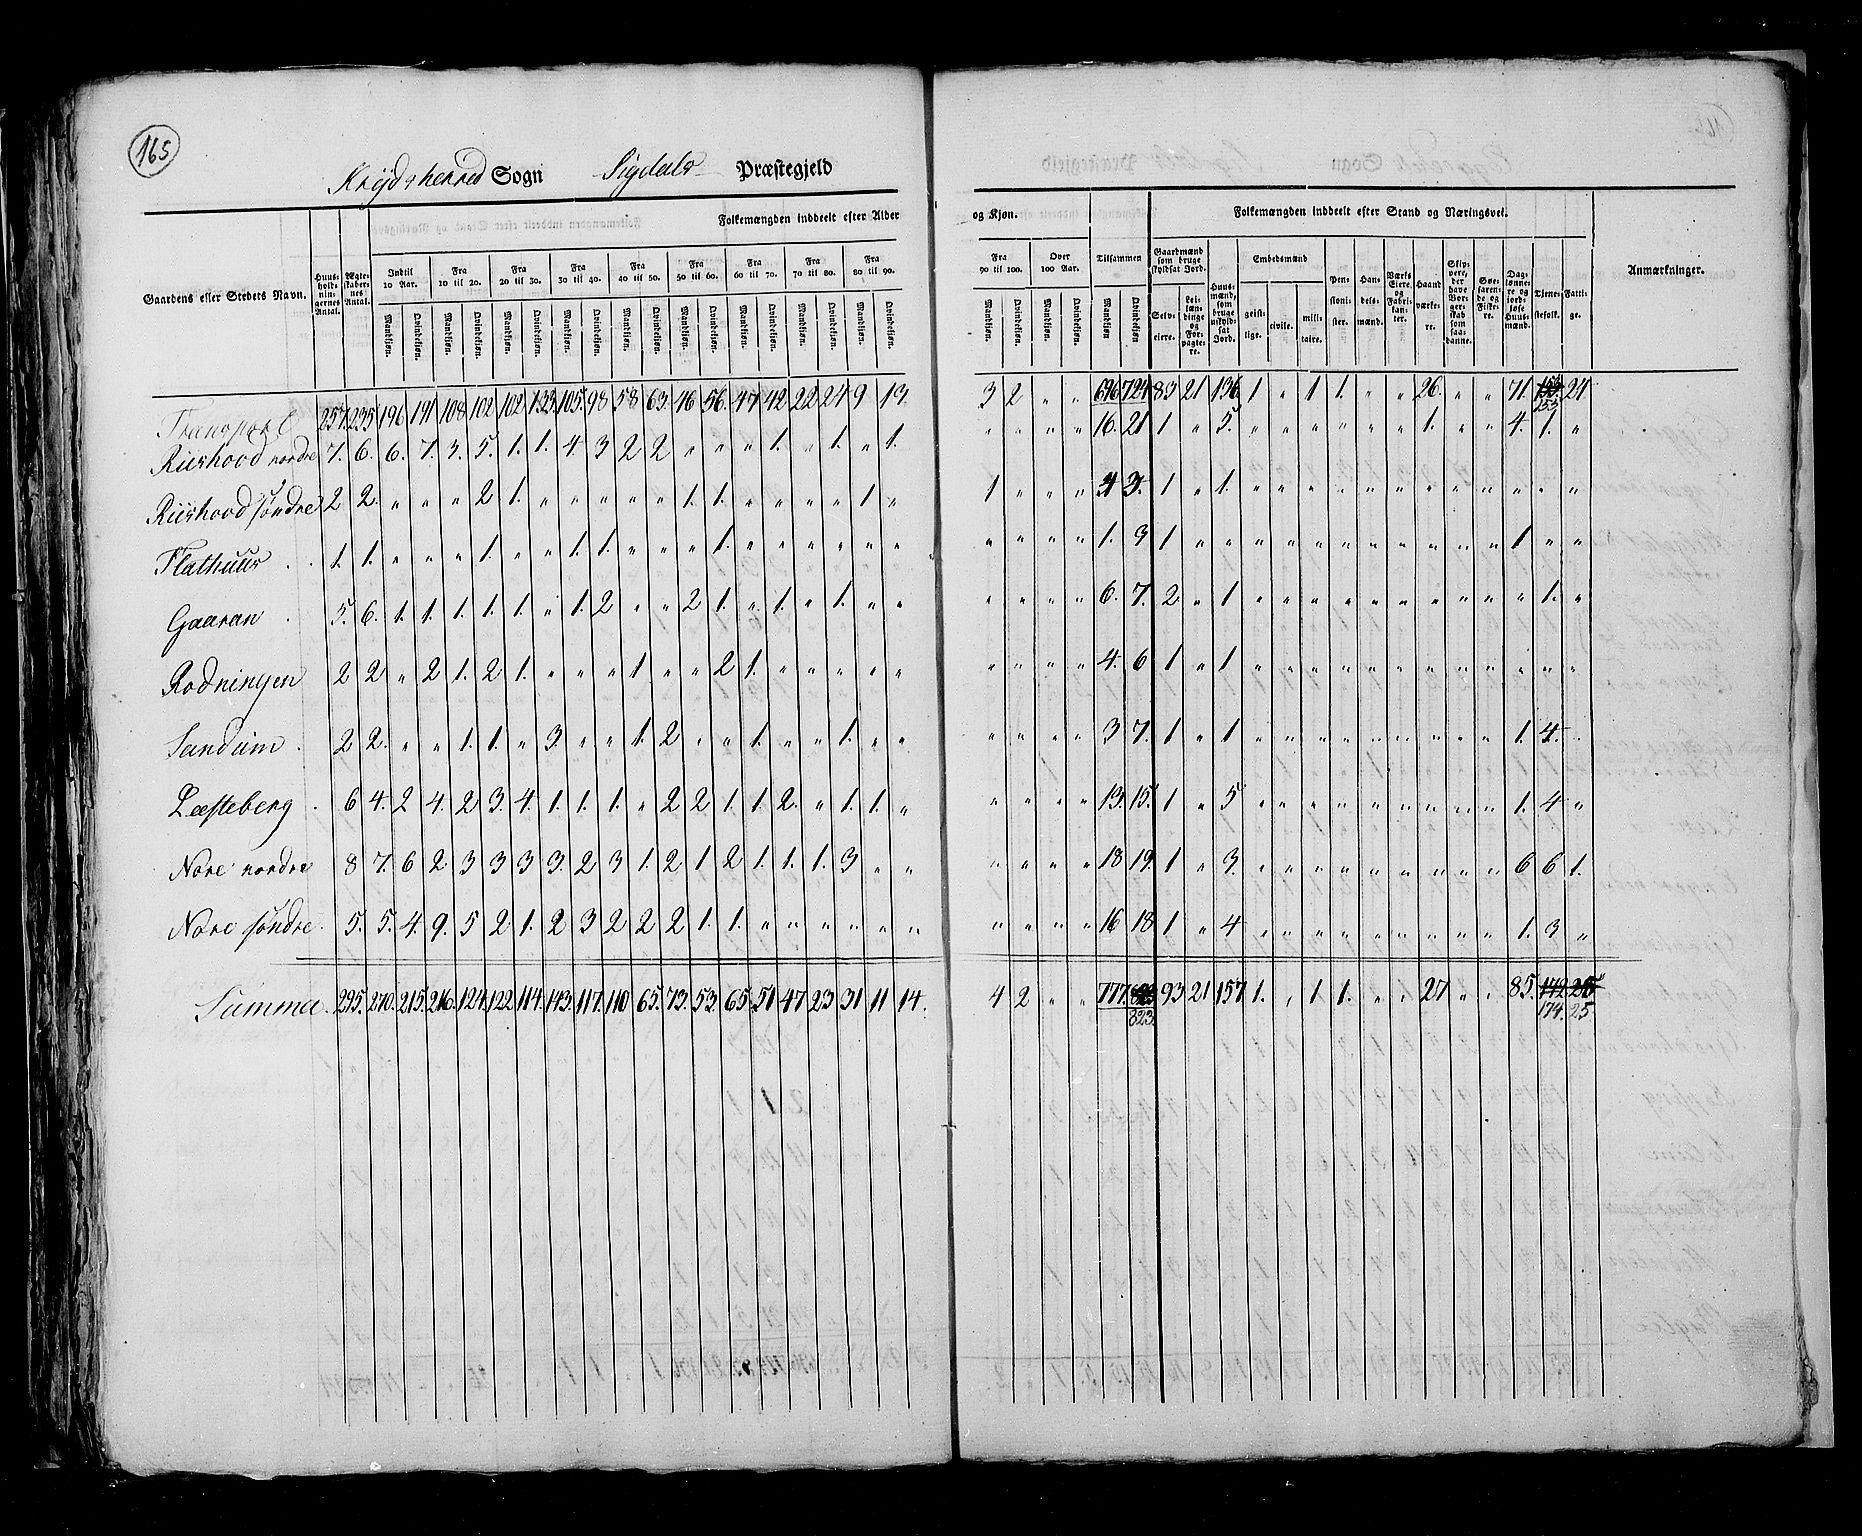 165
Krydsherred Sogn Sigdals Præstegjeld
Folkemængden inddeelt efter Alder og Kjøn. Folkemængden inddeelt efter Stand og Næringsvei.
Gaardens eller Stedets Navn. Huusholdningernes Antal. Ægteskabernes Antal. Indtil 10 Aar. Fra 10 til 20. Fra 20 til 30. Fra 30 til 40. Fra 40 til 50. Fra 50 til 60. Fra 60 til 70. Fra 70 til 80. Fra 80 til 90. Fra 90 til 100. Over 100 Aar. Tilsammen Gaardmænd som bruge skyldsat Jord. Huusmænd, som bruge uskyldsat Jord. Embedsmænd Pensionister. Handelsmænd. Værks Eiere og Fabrikanter. Haandværkere. Skippere, der have Borgerskab som saadanne. Søefarende og Fiskere. Daglønnere og jordløse Huusmænd. Tjenestefolk. Fattige. Anmærkninger.
Mandkjøn. Qvindekjøn. Mandkjøn. Qvindekjøn. Mandkjøn. Qvindekjøn. Mandkjøn. Qvindekjøn. Mandkjøn. Qvindekjøn. Mandkjøn. Qvindekjøn. Mandkjøn. Qvindekjøn. Mandkjøn. Qvindekjøn. Mandkjøn. Qvindekjøn. Mandkjøn. Qvindekjøn. Mandkjøn. Qvindekjøn. Mandkjøn Qvindekjøn. Selveiere. Leilændinge og Forpagtere. geistlige. civile. militaire.
Transport 257. 235 196 191 108 102 102 133 105. 98 58 63. 46 56. 47 42 22 24 9 13. 3 2 " " 696 724 83 21 136 1 " 1 1. " " 26. " " 71. 153. 24.
253
Riishovd nordre 7. 6. 6. 7. 3. 5. 1. 1. 4. 3 2 2 " " " 1. " 1. " 1. " " " " 16. 21 1 " 5. " " " " " " 1. " " 4. 1. "
Riishovd søndre 2 2. " " " 2 1. " " " " " 1. 1. " " " " 1 " 1 " " " 4 3. 1 " 1. " " " " " " " " " " " "
Flathuus 1. 1. " " " 1. " " 1. 1. " " " 1. " " " " " " " " " " 1. 3 1 " " " " " " " " " " " 1 " "
Gaaran 5. 6. 1. 1. 1. 1. 1. " 1. 2 " " 2 1. " 1. " 1. " " " " " " 6. 7. 2. " 1 " " " " " " " " " " 1. "
Rodningen 2 2. " 2 1. 2 1. " " " 1 " " 2 1. " " " " " " " " " 4. 6 1 " 1 " " " " " " " " " " " "
Sandum 2 2. " " 1. 1. " 3. " " 1. 2 " " 1. " " 1. " " " " " " 3 7. 1. " 1 " " " " " " " " " 1. 4. "
Læsteberg 6 4. 2 4. 2 3. 4. 1. 1. 1. " 2 2 1. 1. 2. " 1. 1. " " " " " 13. 15. 1 " 5 " " " " " " " " " 1. 4 "
Nore nordre 8 7. 6 2. 3 3 3 3. 2 3 1. 2 1 2 1. 1. 1. 3 " " " " " " 18 19. 1 " 3. " " " " " " " " " 6 6 1.
Nore søndre. 5. 5. 4. 9. 5 2 1. 2 3 2 2 2 1. 1. " " " " " " " " " " 16 18 1 " 4 " " " " " " " " " 1. 3 "
Summa. 295. 270. 215. 216. 124. 122 114. 143. 117. 110 65. 73. 53. 65. 51 47 23 31 11 14. 4 2 " " 777. 93 21 157 1. " 1 1. " " 27 " " 85. 142
823. 174. 25